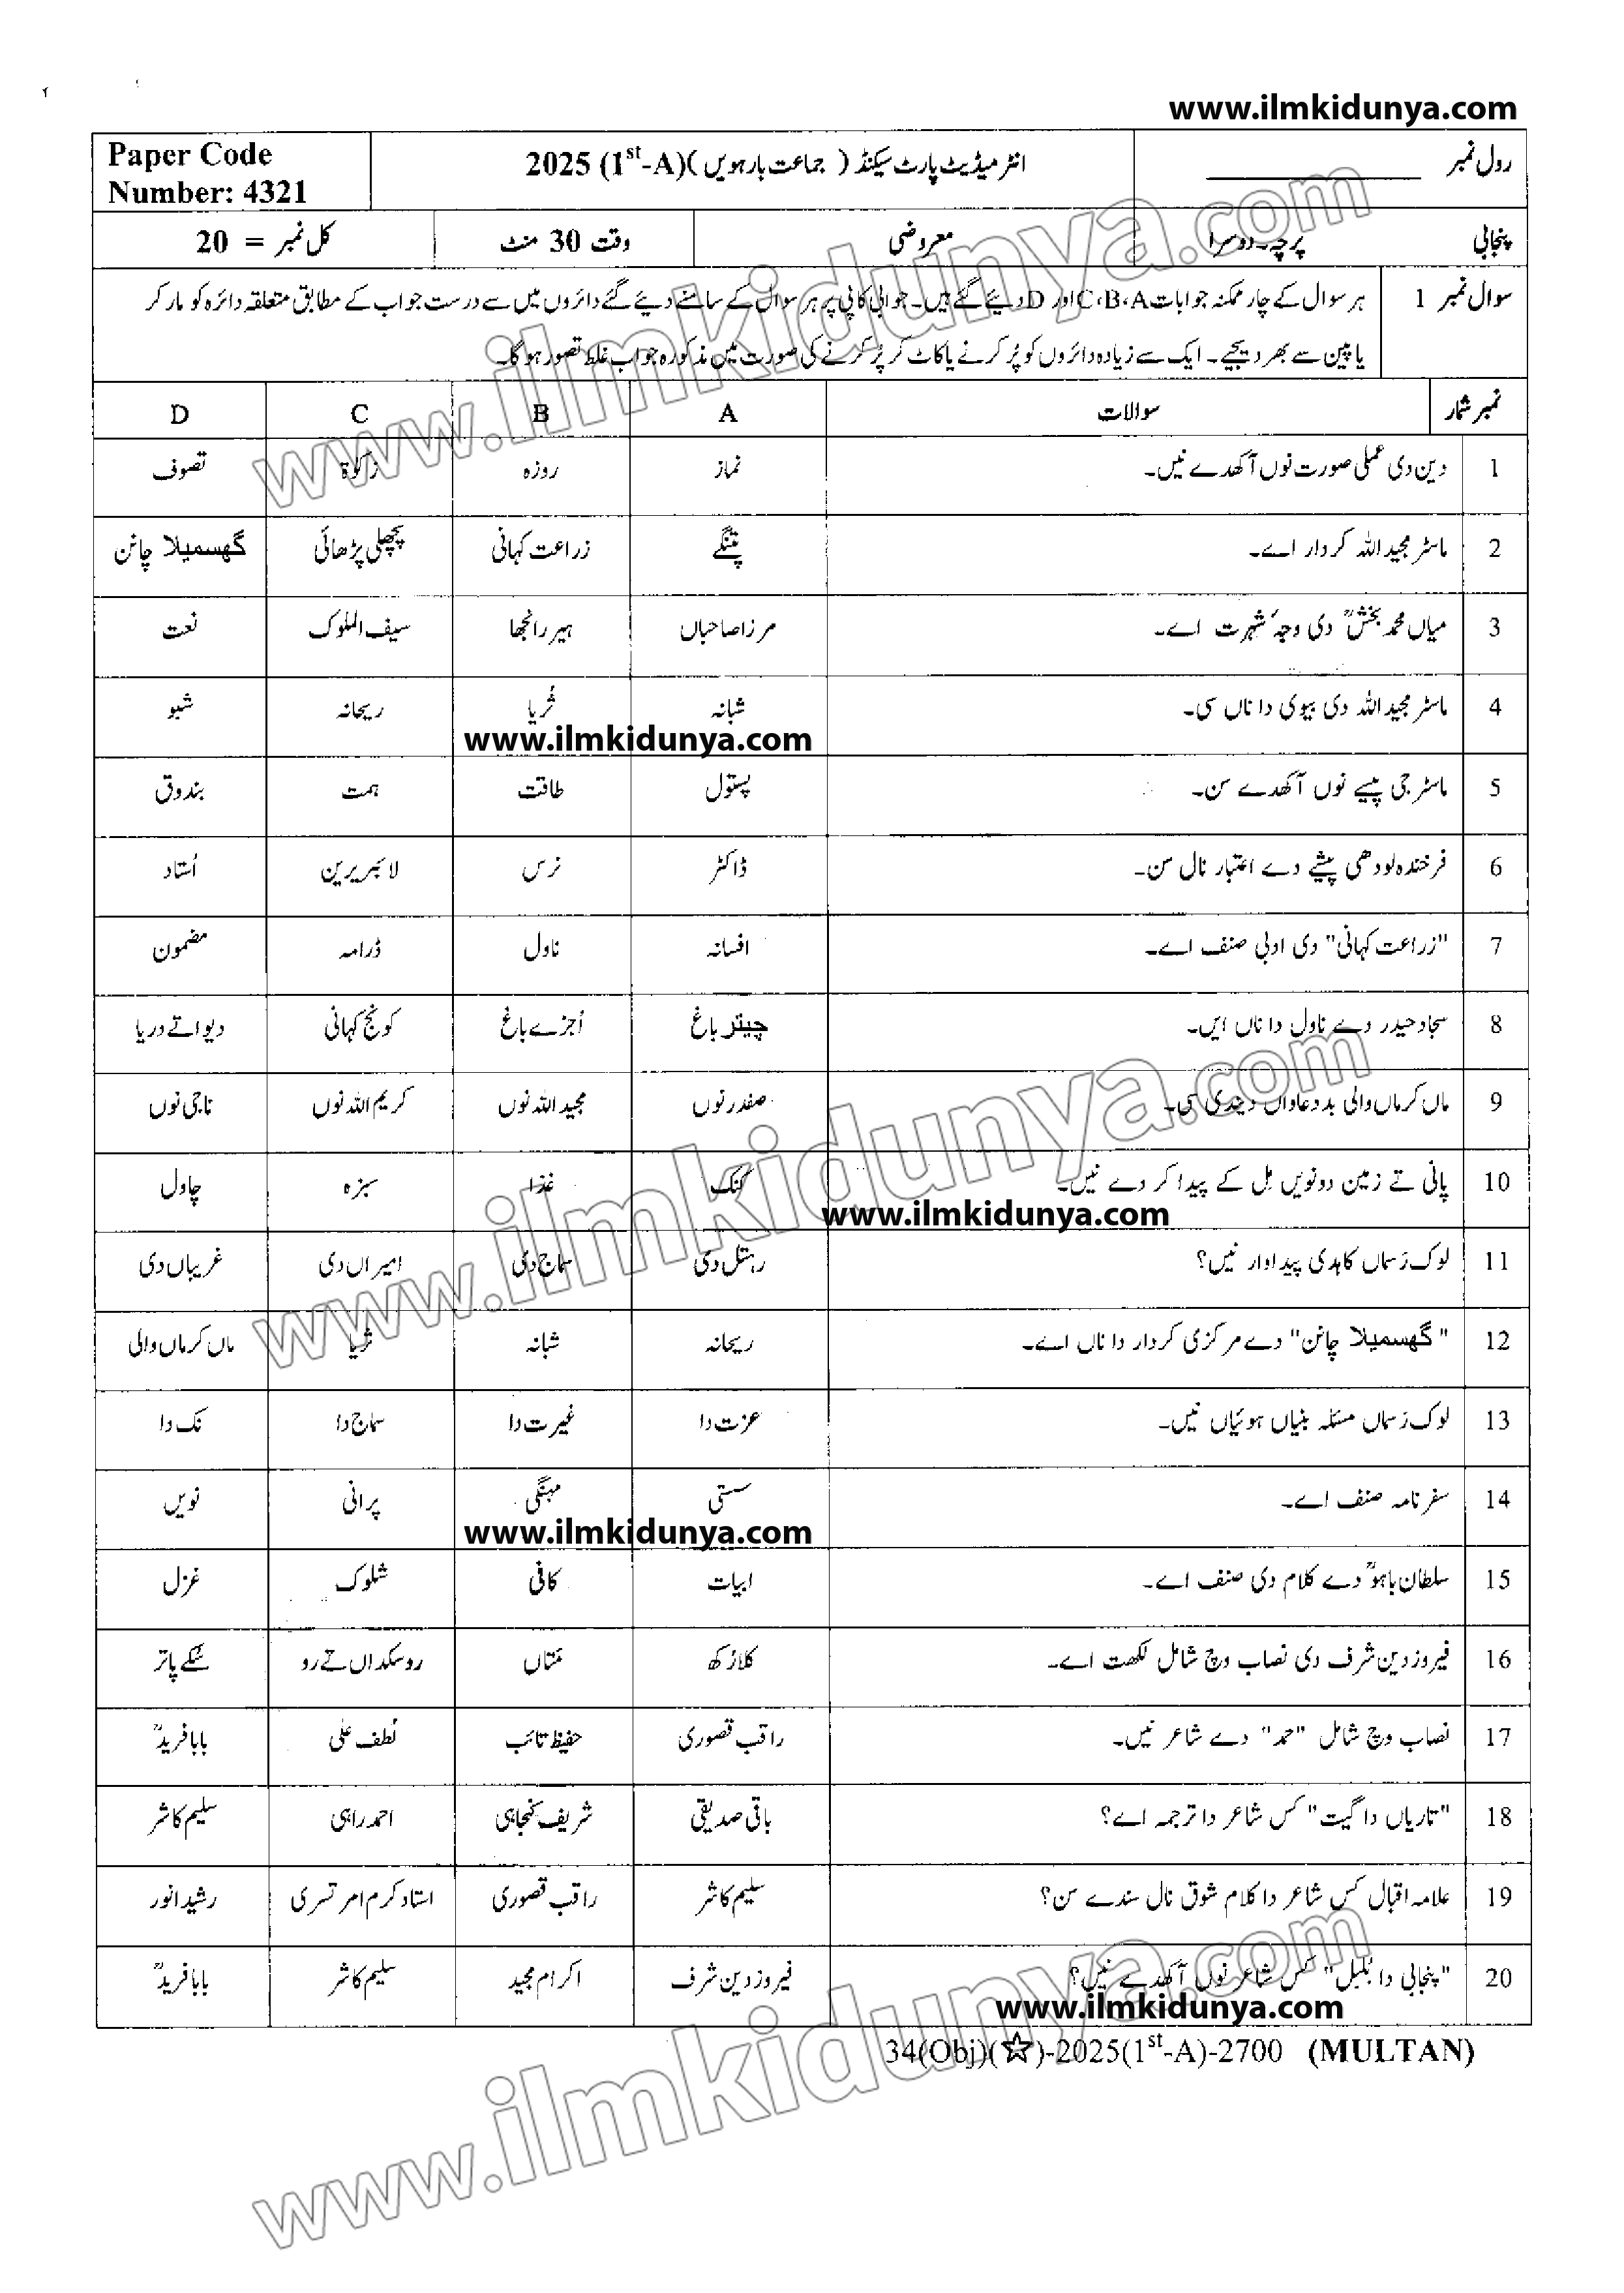 www.ilmkidunya.com
Paper Code
Number: 4321
انٹرمیڈیٹ پارٹ سیکنڈ ( جماعت بارھویں )(1st-A) 2025
رول نمبر
پنجابی
پرچہ۔دوسرا
معروضی
وقت 30 منٹ
کل نمبر = 20
سوال نمبر 1
ہر سوال کے چار ممکنہ جوابات C،B،A اور D دیئے گئے ہیں۔ جوابی کاپی پر ہر سوال کے سامنے دیئے گئے دائروں میں سے درست جواب کے مطابق متعلقہ دائرہ کو مارکر
یا پین سے بھر دیجیے۔ ایک سے زیادہ دائروں کو پُر کرنے یا کاٹ کر پُر کرنے کی صورت میں مذکورہ جواب غلط تصور ہوگا۔
نمبر شمار سوالات A B C D
1 دین دی عملی صورت نوں آکھدے نیں۔ نماز روزہ زکوٰۃ تصوف
2 ماسٹر مجید اللہ کردار اے۔ پتنگے زراعت کہانی پچھلی پڑھائی گھسمیلا چانن
3 میاں محمد بخشؒ دی وجہ شہرت اے۔ مرزا صاحباں ہیر رانجھا سیف الملوک نعت
4 ماسٹر مجید اللہ دی بیوی دا ناں سی۔ شبانہ ثُریا ریحانہ شبو
www.ilmkidunya.com
5 ماسٹر جی پیسے نوں آکھدے سن۔ پستول طاقت ہمت بندوق
6 فرخندہ لودھی پیشے دے اعتبار نال سن۔ ڈاکٹر نرس لائبریرین اُستاد
7 "زراعت کہانی" دی ادبی صنف اے۔ افسانہ ناول ڈرامہ مضمون
8 سجاد حیدر دے ناول دا ناں ایں۔ چیتر باغ اُجڑے باغ کونج کہانی دیوا تے دریا
9 ماں کرماں والی بددعاواں دیندی سی۔ صفدر نوں مجید اللہ نوں کریم اللہ نوں ناجی نوں
10 پانی تے زمین دونویں مِل کے پیدا کر دے نیں۔ کنک غذا سبزہ چاول
www.ilmkidunya.com
11 لوک رَسماں کاہدی پیداوار نیں؟ رہتل دی سماج دی امیراں دی غریباں دی
12 "گھسمیلا چانن" دے مرکزی کردار دا ناں اے۔ ریحانہ شبانہ ثُریا ماں کرماں والی
13 لوک رَسماں مسئلہ بنیاں ہوئیاں نیں۔ عزت دا غیرت دا سماج دا نک دا
14 سفر نامہ صنف اے۔ سستی مہنگی پرانی نویں
www.ilmkidunya.com
15 سلطان باہوؒ دے کلام دی صنف اے۔ ابیات کافی شلوک غزل
16 فیروز دین شرف دی نصاب وچ شامل لکھت اے۔ کلا رُکھ مَتاں رو سکداں تے رو سُکے پاتر
17 نصاب وچ شامل "حمد" دے شاعر نیں۔ راقب قصوری حفیظ تائب لُطف علی بابا فریدؒ
18 "تاریاں دا گیت" کس شاعر دا ترجمہ اے؟ باقی صدیقی شریف کنجاہی احمد راہی سلیم کاشر
19 علامہ اقبال کس شاعر دا کلام شوق نال سندے سن؟ سلیم کاشر راقب قصوری استاد کرم امرتسری رشید انور
20 "پنجابی دا بُلبل" کس شاعر نوں آکھدے نیں؟ فیروز دین شرف اکرام مجید سلیم کاشر بابا فریدؒ
www.ilmkidunya.com
34(Obj)(☆)-2025(1st-A)-2700 (MULTAN)
www.ilmkidunya.com
www.ilmkidunya.com
www.ilmkidunya.com